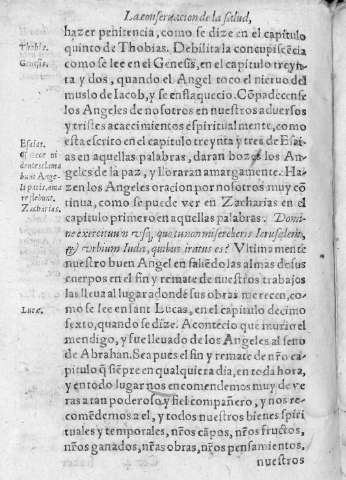 La conseruacion de la salud,
hazer penitencia, como se dize en el capitulo
Thobiæ.
quinto de Thobias. Debilita la concupiscẽcia
Genesis.
como se lee en el Genesis, en el capitulo treyn
ta y dos, quando el Angel toco el nieruo del
muslo de Iacob, y se enflaquecio. Cõpadecense
los Angeles de nosotros en nuestros aduersos
y tristes acaecimientos espiritualmente, como
esta escrito en el capitulo treynta y tres de Esai-
Esaiæ.
as en aquellas palabras, daran bozes los An-
geles de la paz, y lloraran amargamente. Ha-
zen los Angeles oracion por nosotros muy cõ
tinua, como se puede ver en Zacharias en el
Zacharias.
capitulo primero en aquellas palabras. Domi-
ne exercituum vsq; quo tu non misereberis Ierusalem,
& vrbium Iuda, quibus iratus es? Vltimamente
nuestro buen Angel en saliẽdo las almas de sus
cuerpos en el fin y remate de nuestros trabajos
las lleua al lugar a donde sus obras merecen, co-
Lucæ.
mo se lee en sant Lucas, en el capitulo decimo
sexto, quando se dize. Acontecio que murio el
mendigo, y fue lleuado de los Angeles al seno
de Abrahan. Sea pues el fin y remate de nr̃o ca
pitulo q̃ siẽpre en qualquiera dia, en toda hora,
y en todo lugar nos encomendemos muy de ve
ras a tan poderoso, y fiel compañero, y nos re-
comẽdemos a el, y todos nuestros bienes spiri
tuales y temporales, nr̃os cãpos, nr̃os fructos,
nr̃os ganados, nr̃as obras, nr̃os pensamientos,
nuestros